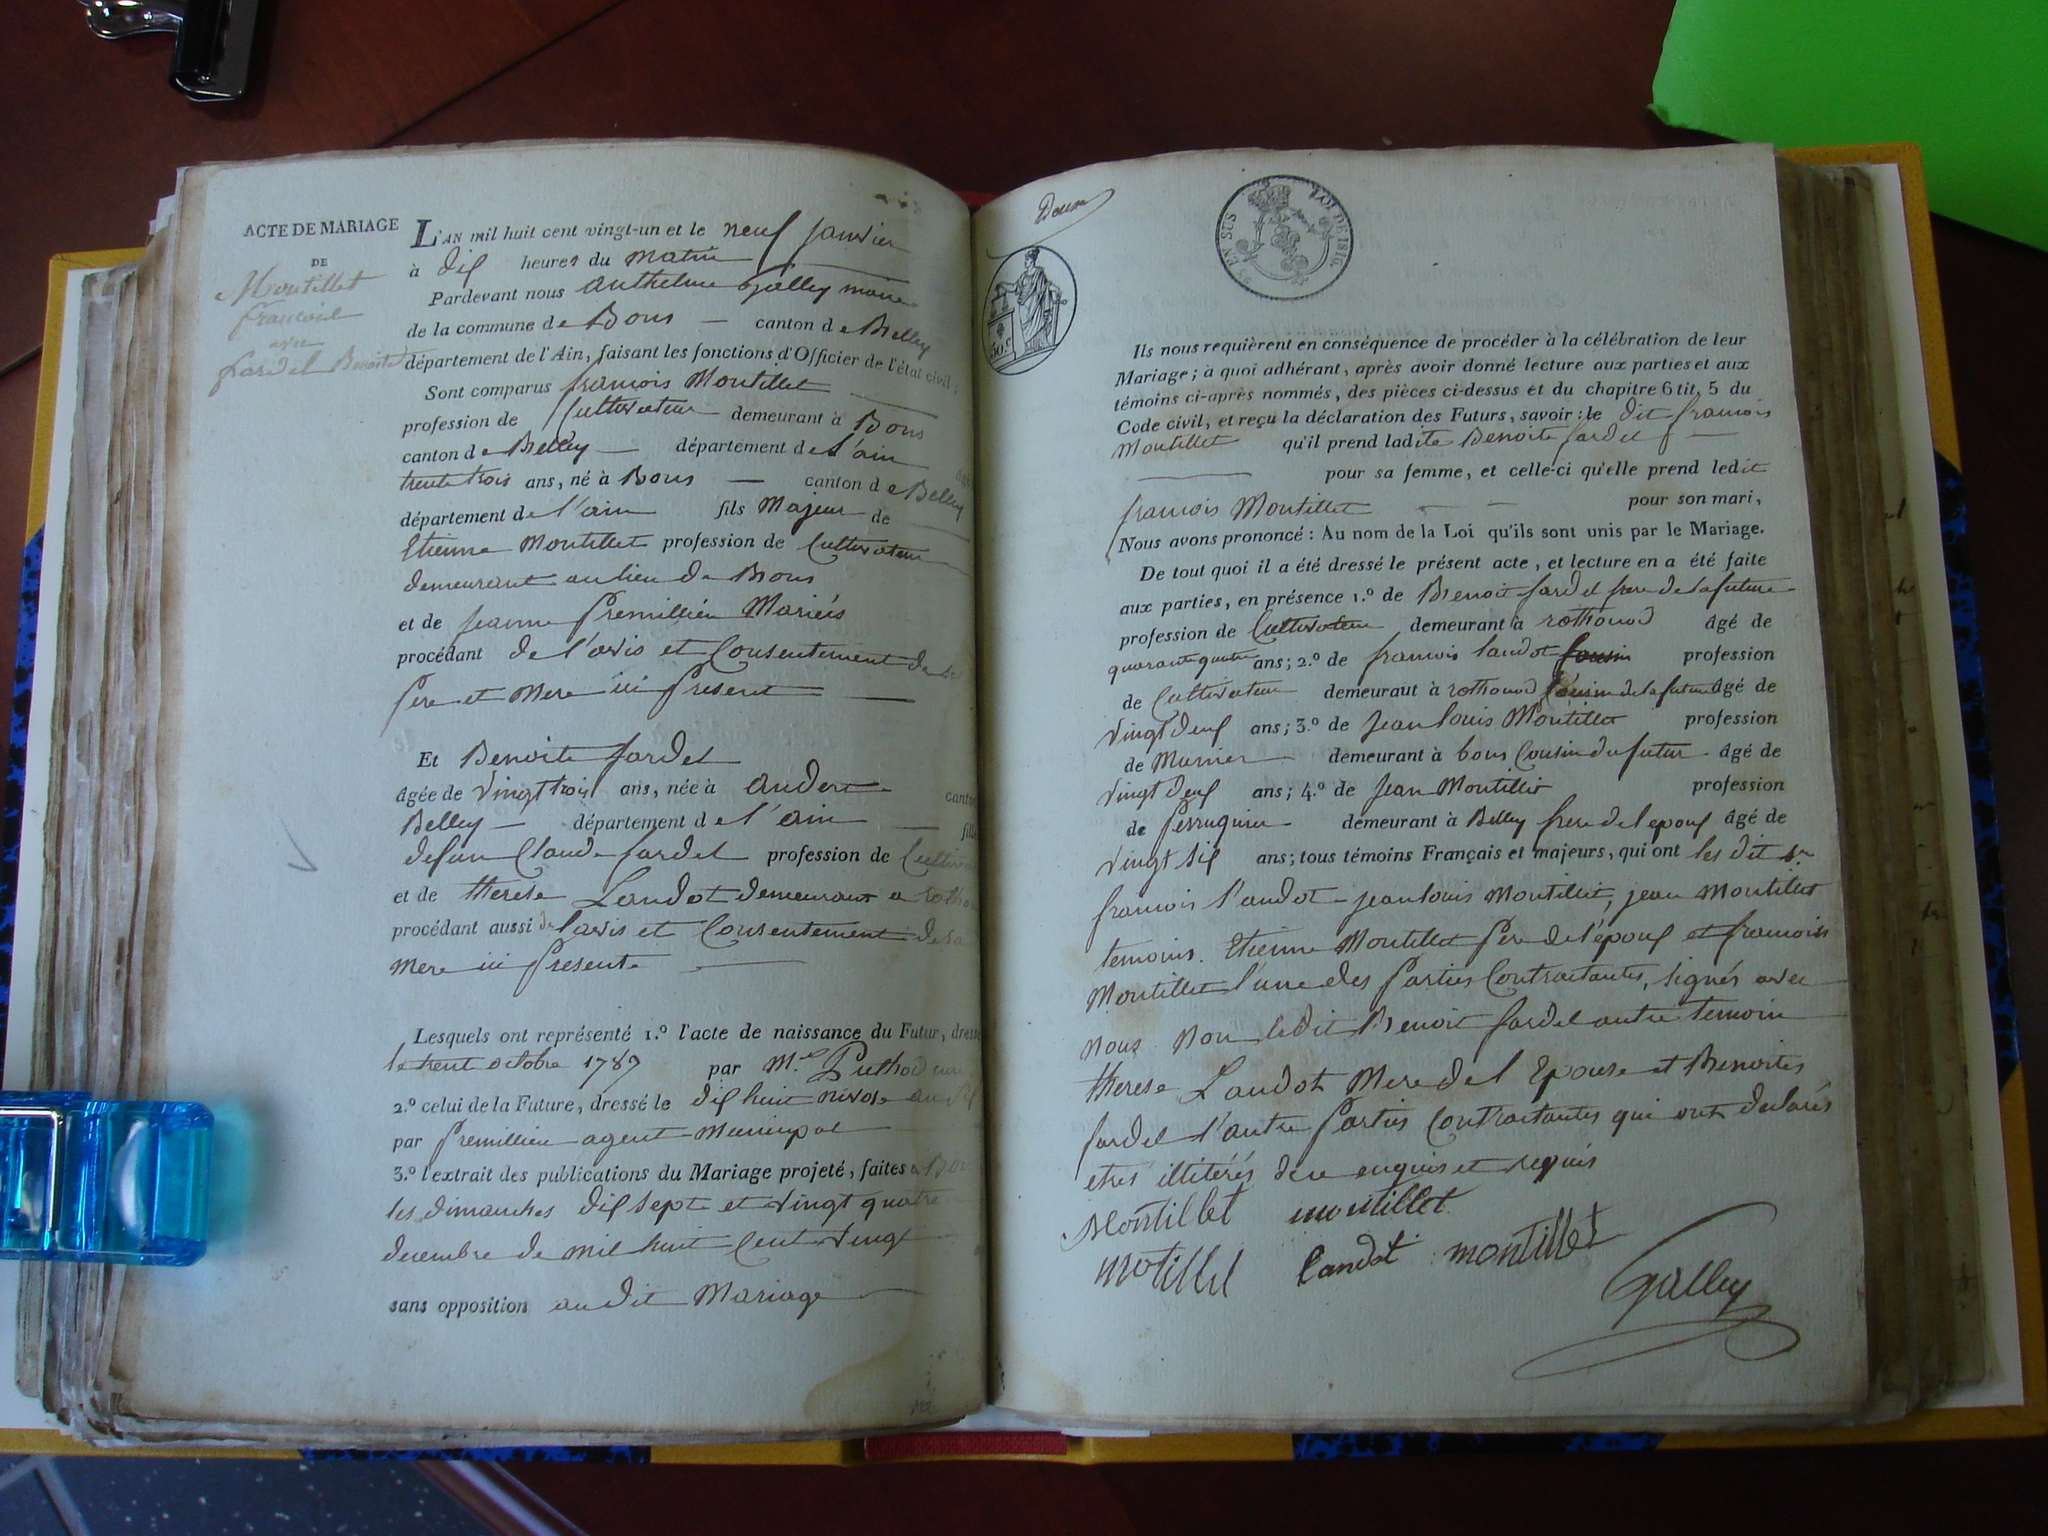 ACTE DE MARIAGE
DE
Montillet
francois
avec
fardel Benoite
L'AN mil huit cent vingt-un et le neuf janvier
à dix heures du matin
Pardevant nous anthelme Galley maire
de la commune de Bons — canton de Belley
département de l'Ain, faisant les fonctions d'Officier de l'état civil;
Sont comparus francois Montillet
profession de Cultivateur demeurant à Bons
canton de Belley — département de l'ain âgé
trente trois ans, né à Bons — canton de Belley
département de l'ain fils Majeur de
Etienne Montillet profession de Cultivateur
demeurant au lieu de Bons
et de jeanne Premillieu Mariés
procédant de l'avis et Consentement de
Pere et Mere ici Present
Et Benoite fardel
âgée de Vingt trois ans, née à andert canton
Belley — département de l'ain — fille
defun Claude fardel profession de
et de therese Landot demeurant a
procédant aussi de l'avis et Consentement de sa
Mere ici Presente
Lesquels ont représenté 1.º l'acte de naissance du Futur, dressé
le trent octobre 1787 par Mr
2.º celui de la Future, dressé le dix huit nivose an
par Premillieu agent Municipal
3.º l'extrait des publications du Mariage projeté, faites à
les dimanches dix sept et vingt quatre
decembre de mil huit Cent Vingt
sans opposition au dit Mariage
Deux
EN SUS
LOI DE 1816.
50.c
Ils nous requièrent en conséquence de procéder à la célébration de leur
Mariage; à quoi adhérant, après avoir donné lecture aux parties et aux
témoins ci-après nommés, des pièces ci-dessus et du chapitre 6 tit. 5 du
Code civil, et reçu la déclaration des Futurs, savoir: le dit francois
Montillet qu'il prend ladite Benoite fardel —
pour sa femme, et celle-ci qu'elle prend ledit
francois Montillet — — pour son mari,
Nous avons prononcé: Au nom de la Loi qu'ils sont unis par le Mariage.
De tout quoi il a été dressé le présent acte, et lecture en a été faite
aux parties, en présence 1.º de Benoit fardel frere de la future
profession de Cultivateur demeurant à rothonod âgé de
quarante quatre ans; 2.º de francois landot cousin profession
de Cultivateur demeurant à rothonod Cousin de la future âgé de
vingt deux ans; 3.º de Jean louis Montillet profession
de Munier demeurant à bons Cousin du futur âgé de
vingt deux ans; 4.º de Jean Montillet profession
de Perruquier demeurant à Belley frere de l'epoux âgé de
Vingt Six ans; tous témoins Français et majeurs, qui ont les dit sr
francois landot jean louis Montillet, jean Montillet
temoins. Etienne Montillet Pere de l'époux et francois
Montillet l'une des Parties Contractantes, signés avec
nous non le dit Benoit fardel autre temoin
therese Landot Mere de l Epouse et Benoites
fardel l'autre Parties Contractantes qui ont declarés
etres illitérés de ce enquis et requis
Montillet montillet
motillel landot montillet
Galley